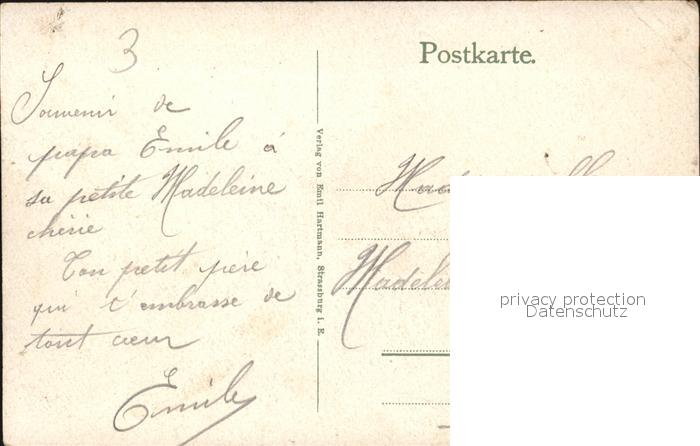 3
Postkarte.
Souvenir de
papa Emile à
sa petite Madeleine
chérie
Ton petit père
qui t'embrasse de
tout cœur
Emile
Verlag von Emil Hartmann, Strassburg i. E.
privacy protection
Datenschutz